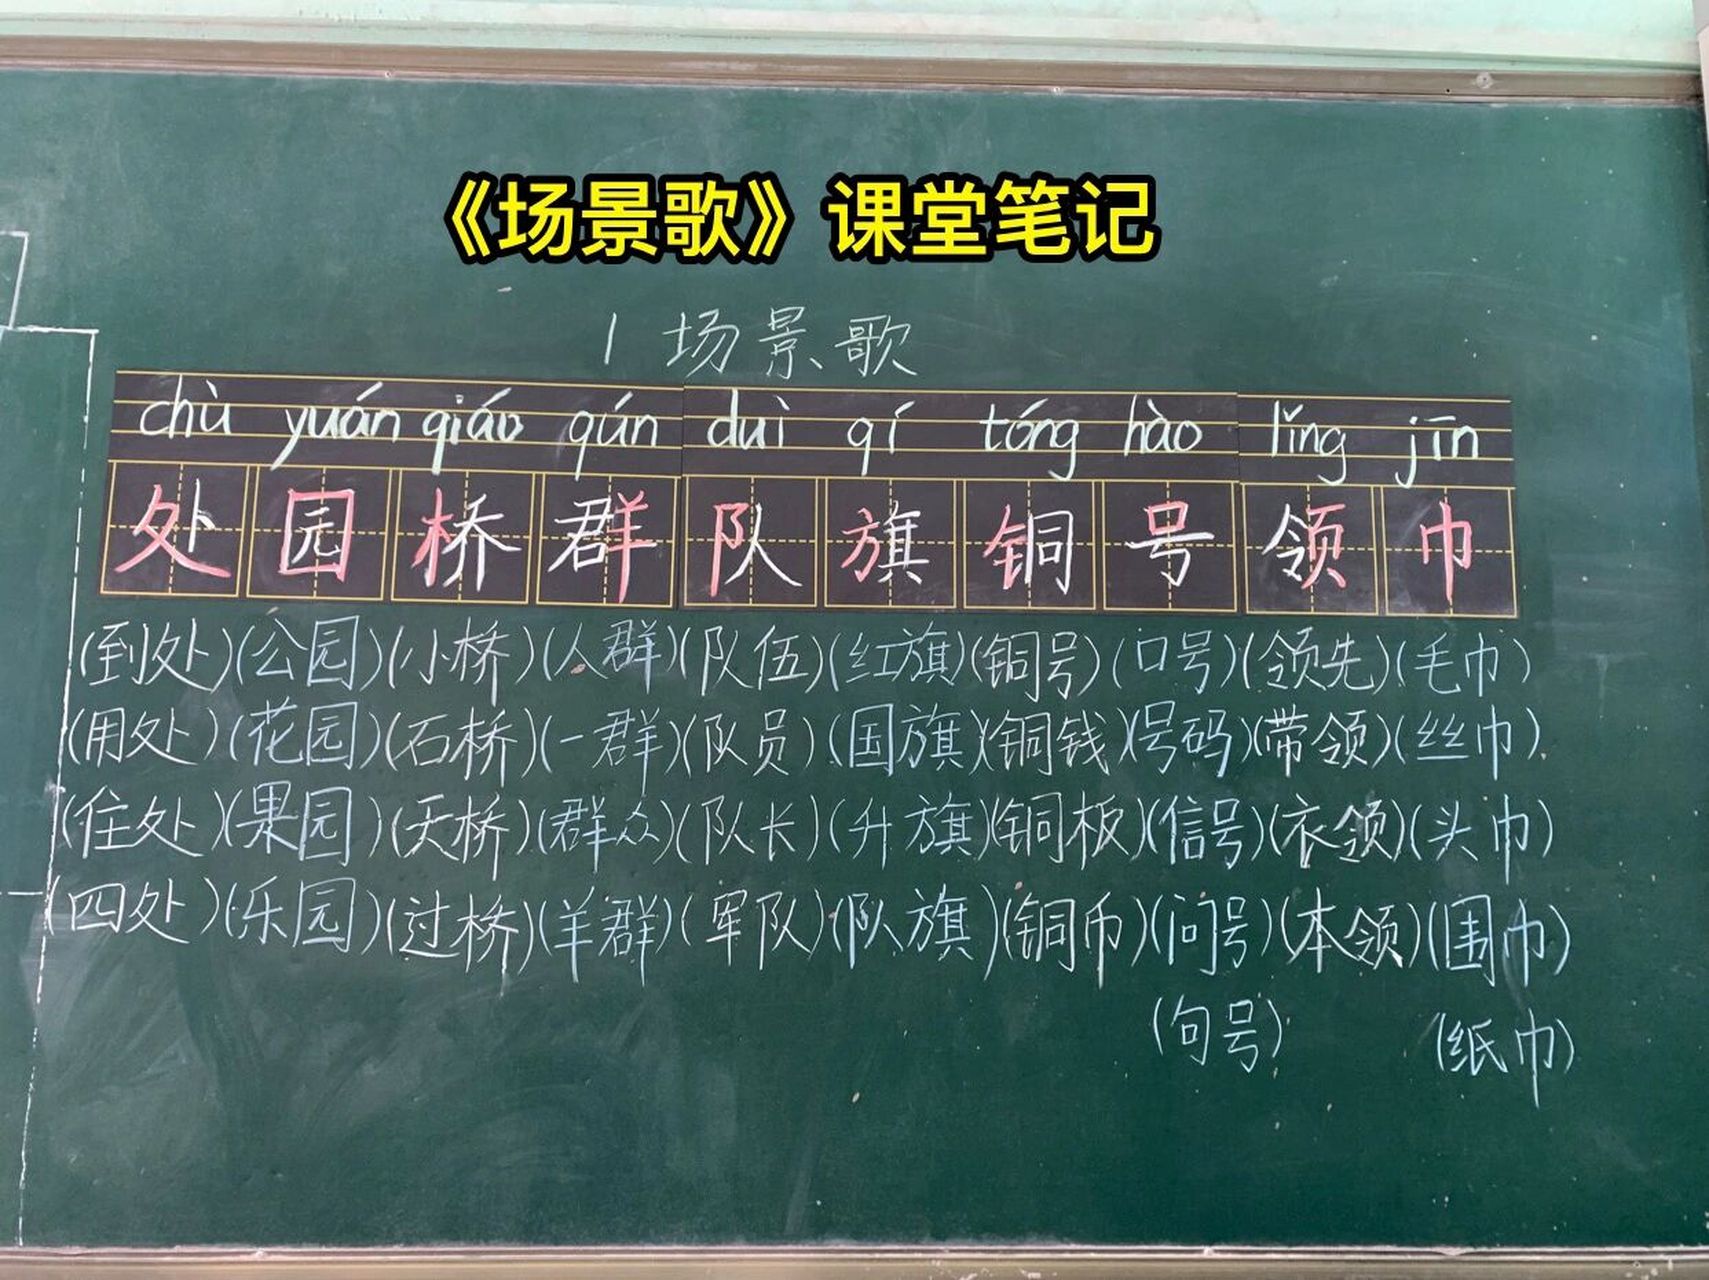 《场景歌》课堂笔记
1 场景歌
chù yuán qiáo qún duì qí tóng hào lǐng jīn
处 园 桥 群 队 旗 铜 号 领 巾
(到处)(公园)(小桥)(人群)(队伍)(红旗)(铜号)(口号)(领先)(毛巾)
(用处)(花园)(石桥)(一群)(队员)(国旗)(铜钱)(号码)(带领)(丝巾)
(住处)(果园)(天桥)(群众)(队长)(升旗)(铜板)(信号)(衣领)(头巾)
(四处)(乐园)(过桥)(羊群)(军队)(队旗)(铜币)(问号)(本领)(围巾)
(句号) (纸巾)